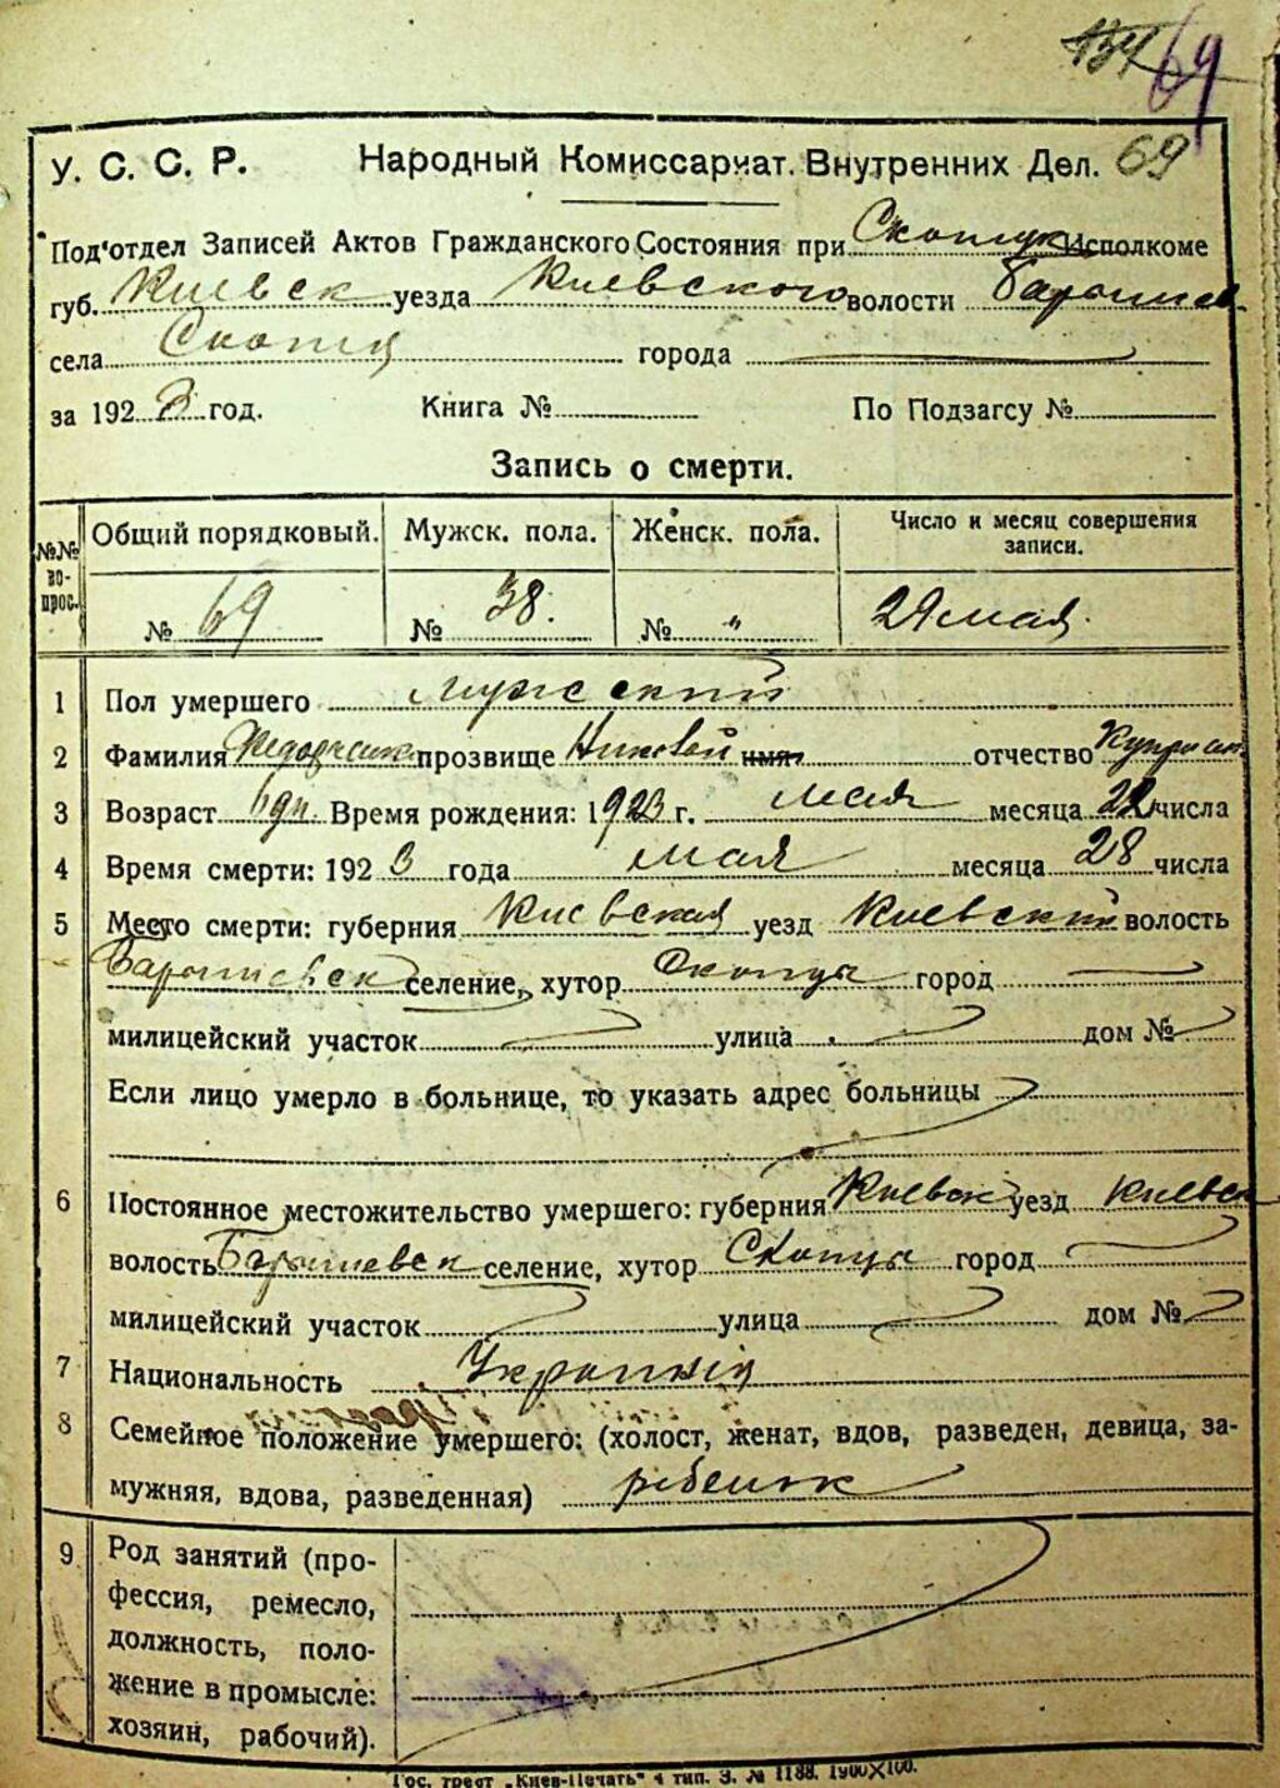 134 69
У. С. С. Р. Народный Комиссариат. Внутренних Дел. 69
Под'отдел Записей Актов Гражданского Состояния при Исполкоме
губ. Киевск уезда Киевского волости Барышев
села Скопця города
за 1923 год. Книга № По Подзагсу №
Запись о смерти.
№№ во- прос. Общий порядковый. Мужск. пола. Женск. пола. Число и месяц совершения записи.
№ 69 № 38. № " 29 мая.
1 Пол умершего мужеский
2 Фамилия прозвище имя отчество
3 Возраст 6 дн. Время рождения: 1923 г. мая месяца 22 числа
4 Время смерти: 1923 года мая месяца 28 числа
5 Место смерти: губерния Киевская уезд Киевский волость
Барышевск селение, хутор Скопцы город
милицейский участок улица дом №
Если лицо умерло в больнице, то указать адрес больницы
6 Постоянное местожительство умершего: губерния Киевск уезд Киевск
волость Барышевск селение, хутор Скопцы город
милицейский участок улица дом №
7 Национальность
8 Семейное положение умершего: (холост, женат, вдов, разведен, девица, за-
мужняя, вдова, разведенная) ребенок
9 Род занятий (про-
фессия, ремесло,
должность, поло-
жение в промысле:
хозяин, рабочий).
Гос. трест „Киев-Печать" 4 тип. З. № 1188. 1900×100.